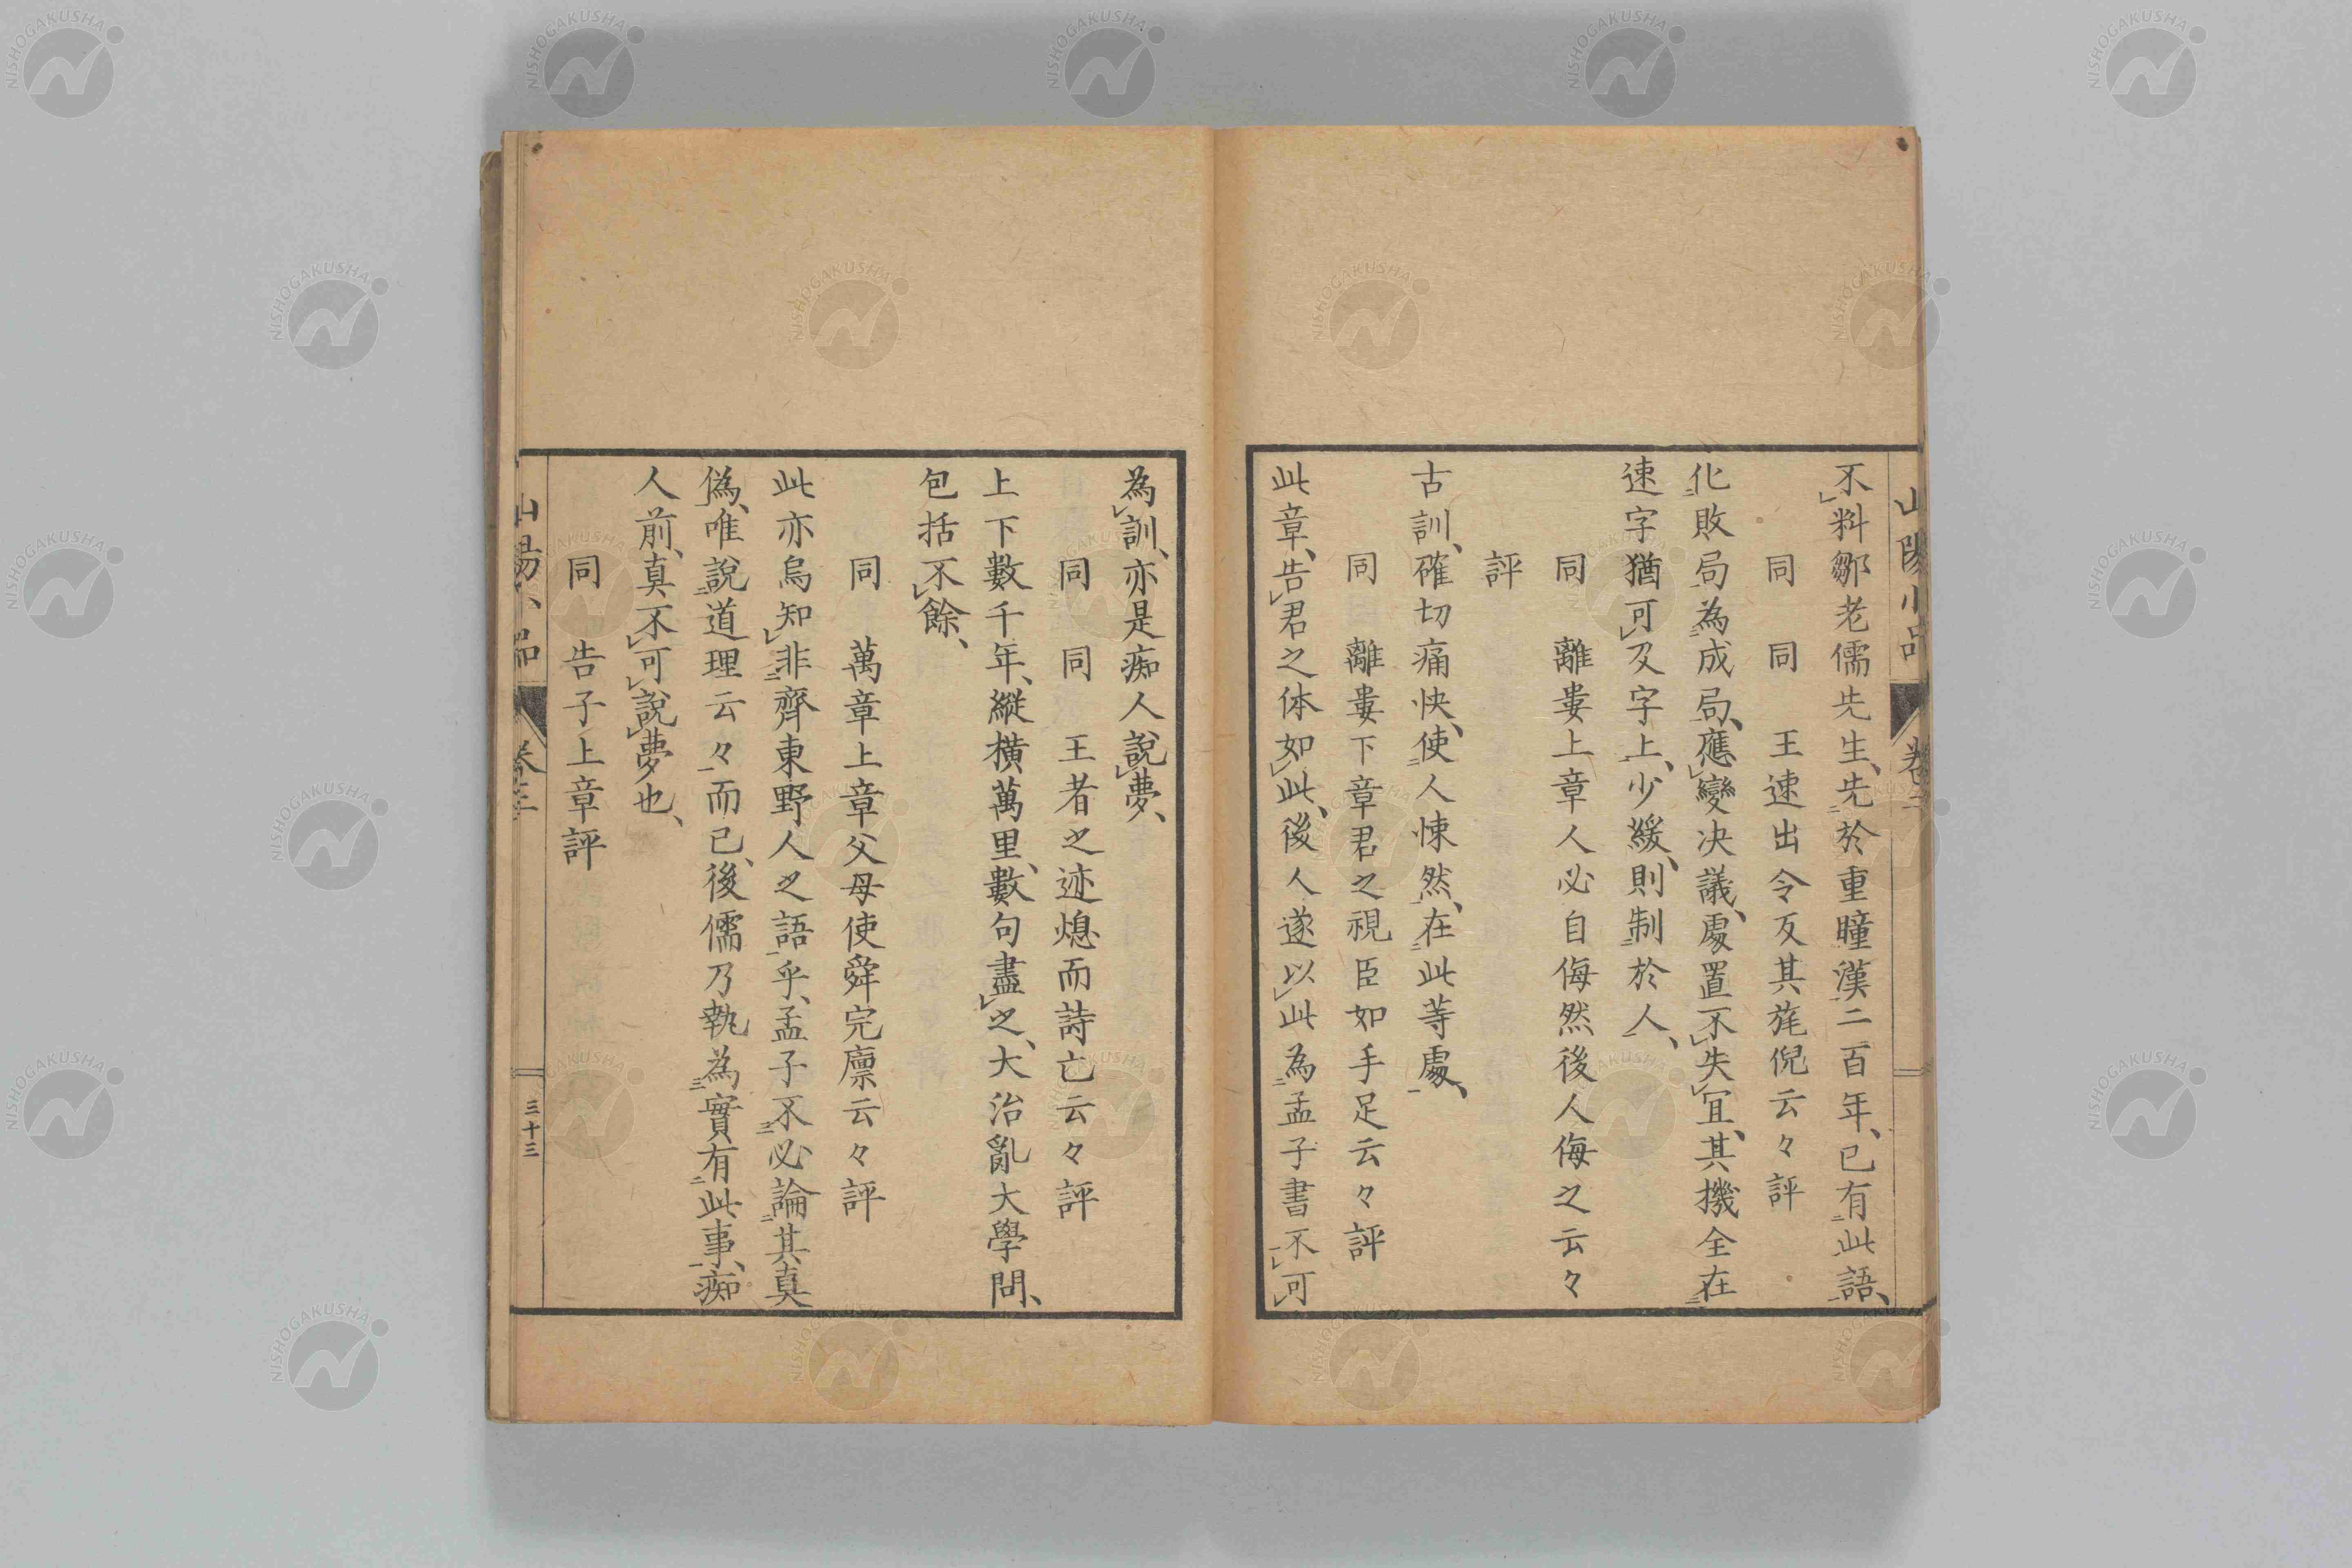 不料鄒老儒先生、先於重瞳漢二百年、已有此語、
同 同 王速出令反其旄倪云々評
化敗局為成局、應變決議、處置不失宜、其機全在
速字猶可及字上、少緩、則制於人、
同 離婁上章人必自侮然後人侮之云々
評
古訓、確切痛快、使人悚然、在此等處、
同 離婁下章君之視臣如手足云々評
此章、告君之体如此、後人遂以此為孟子書不可
為訓、亦是痴人說夢、
同 同 王者之迹熄而詩亡云々評
上下數千年、縱橫萬里、數句盡之、大治亂大學問、
包括不餘、
同 萬章上章父母使舜完廩云々評
此亦烏知非齊東野人之語乎、孟子不必論其真
偽、唯說道理云々而已、後儒乃執為實有此事、痴
人前、真不可說夢也、
同 告子上章評
山陽小品
三十三
NISHOGAKUSHA